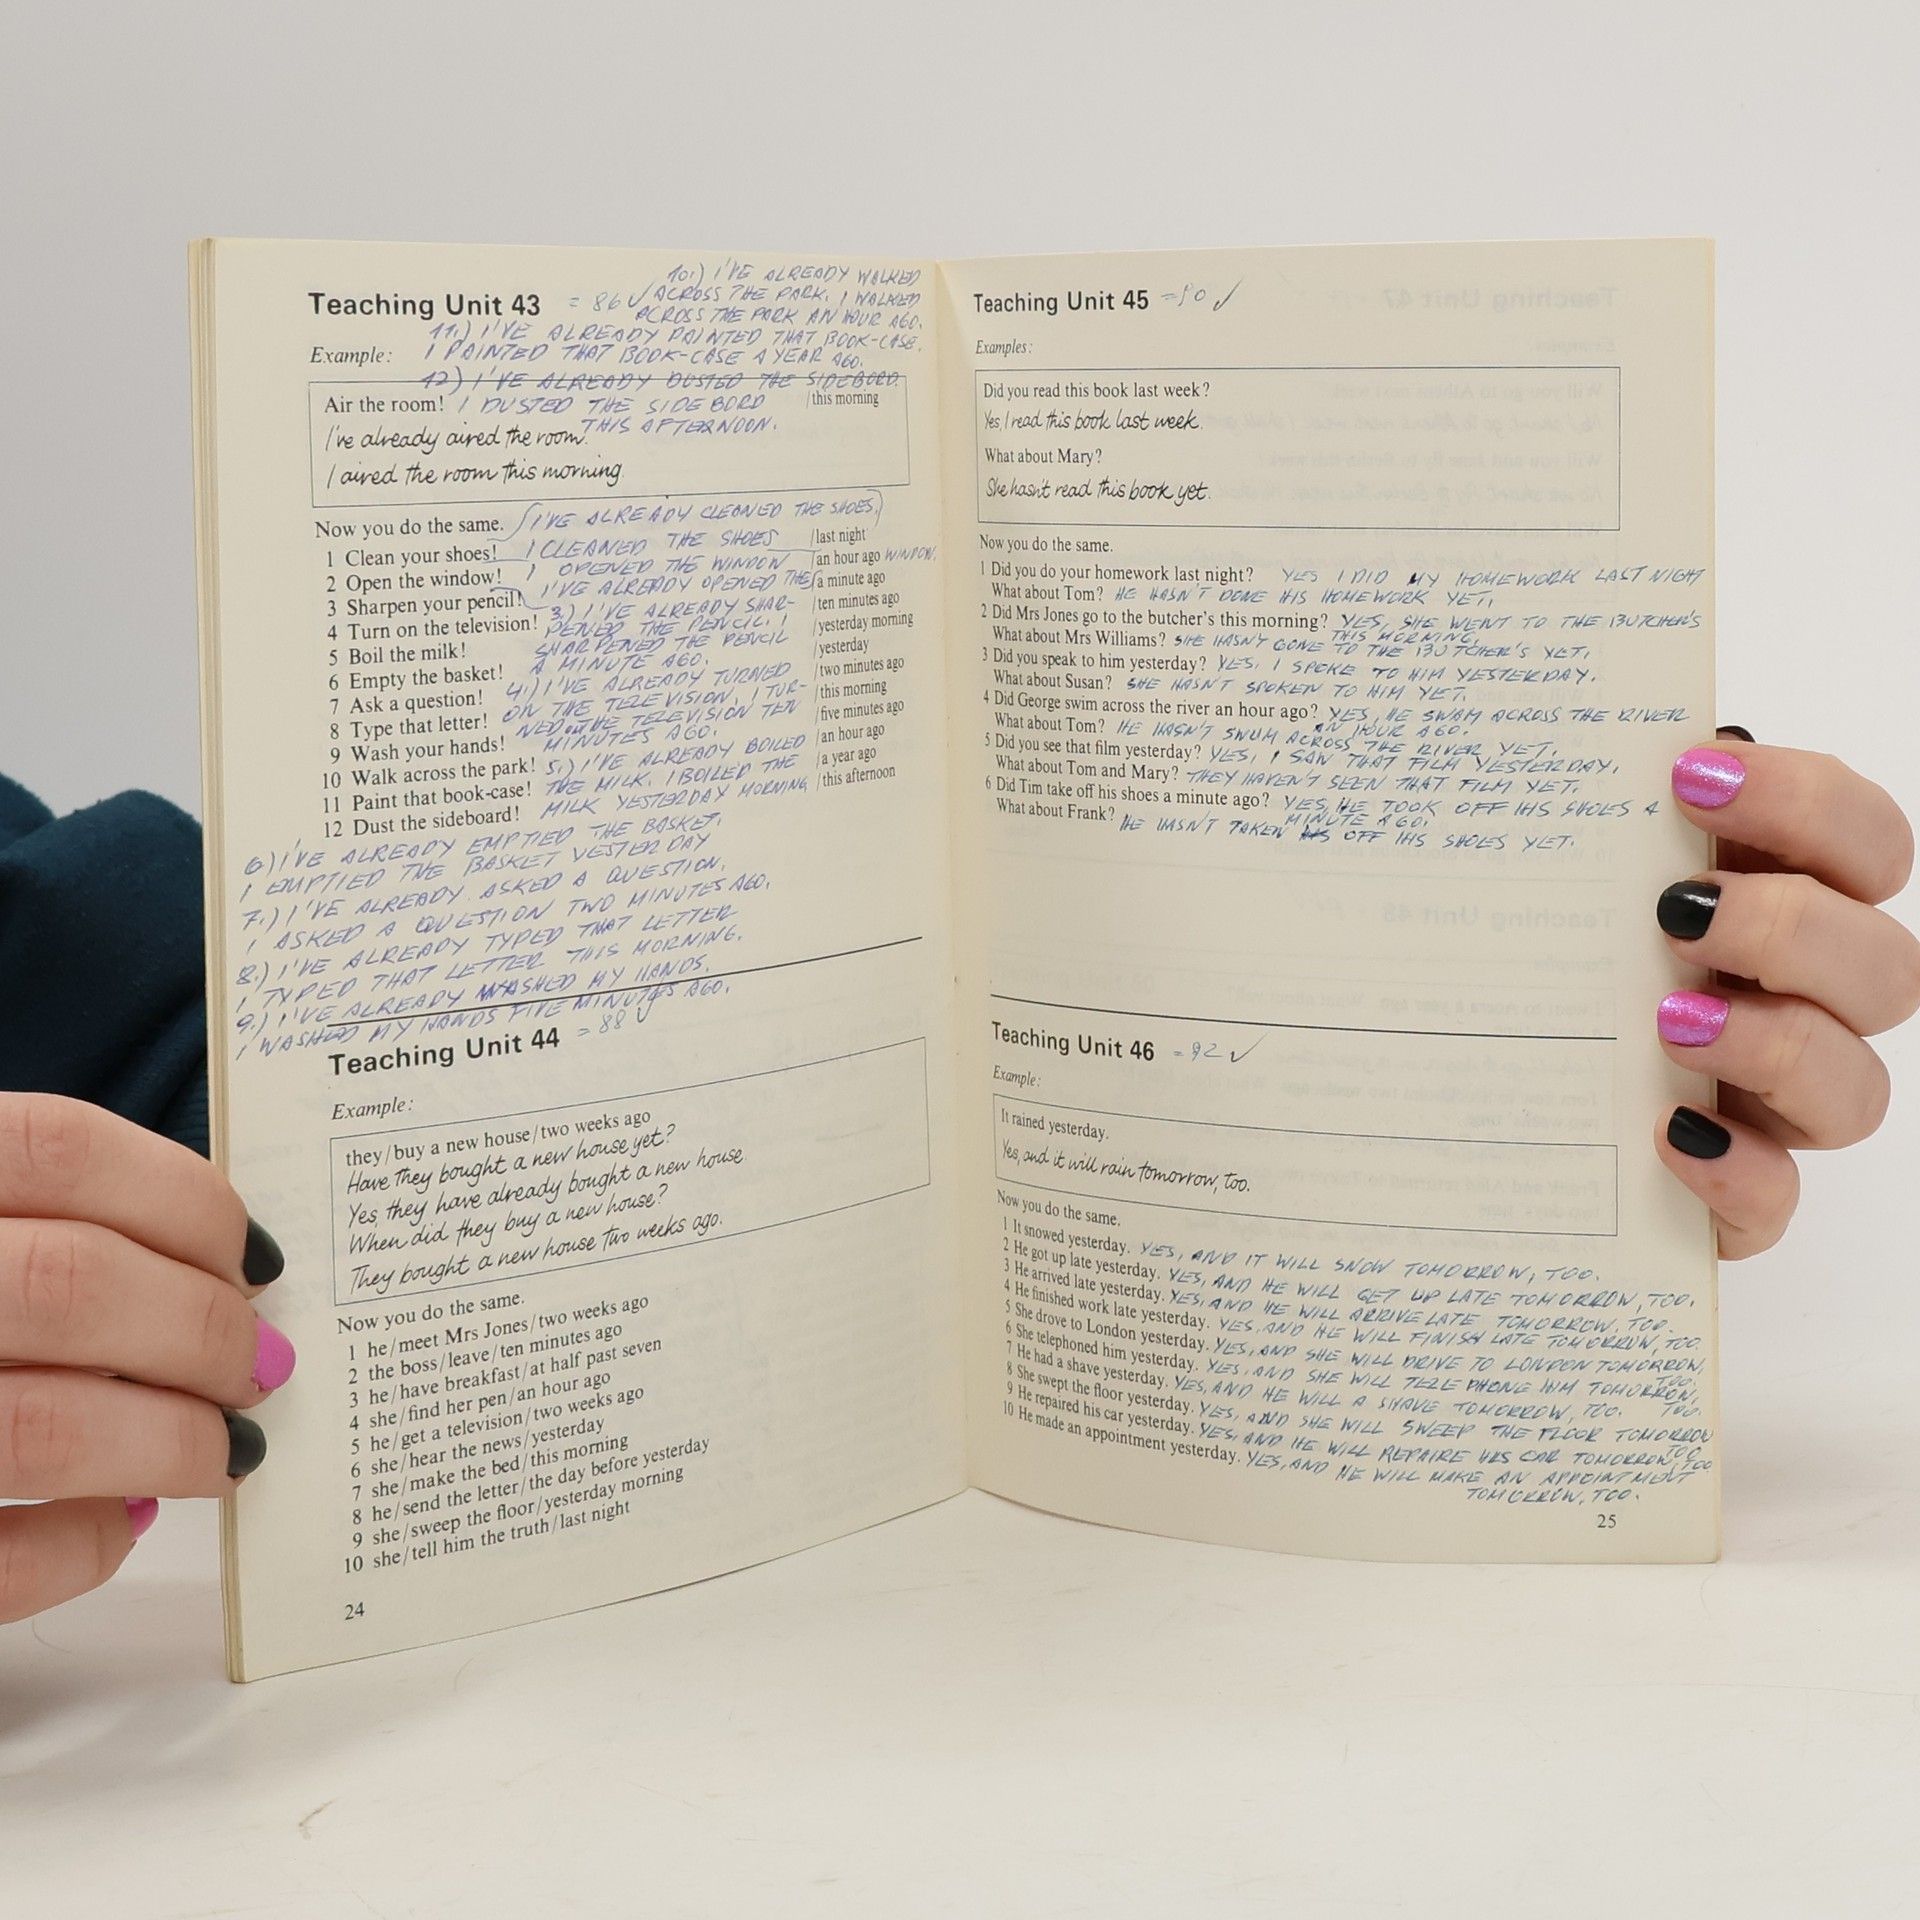 10.) I'VE ALREADY WALKED
Teaching Unit 43 = 86 ✓ ACROSS THE PARK. I WALKED
ACROSS THE PARK AN HOUR AGO.
11.) I'VE ALREADY PAINTED THAT BOOK-CASE.
Example: I PAINTED THAT BOOK-CASE A YEAR AGO.
12) I'VE ALREADY DUSTED THE SIDEBORD.
Air the room! I DUSTED THE SIDEBORD /this morning
I've already aired the room. THIS AFTERNOON.
I aired the room this morning.
Now you do the same. I'VE ALREADY CLEANED THE SHOES.
1 Clean your shoes! I CLEANED THE SHOES /last night
2 Open the window! I OPENED THE WINDOW /an hour ago WINDOW.
3 Sharpen your pencil! I'VE ALREADY OPENED THE /a minute ago
4 Turn on the television! 3.) I'VE ALREADY SHAR- /ten minutes ago
5 Boil the milk! PENED THE PENCIL. I /yesterday morning
6 Empty the basket! SHARPENED THE PENCIL /yesterday
7 Ask a question! A MINUTE AGO. /two minutes ago
8 Type that letter! 4.) I'VE ALREADY TURNED /this morning
9 Wash your hands! ON THE TELEVISION. I TUR- /five minutes ago
10 Walk across the park! NED ON THE TELEVISION TEN /an hour ago
11 Paint that book-case! MINUTES AGO. /a year ago
12 Dust the sideboard! 5.) I'VE ALREADY BOILED /this afternoon
THE MILK. I BOILED THE
MILK YESTERDAY MORNING
6) I'VE ALREADY EMPTIED THE BASKET.
I EMPTIED THE BASKET YESTERDAY
7.) I'VE ALREADY ASKED A QUESTION.
I ASKED A QUESTION TWO MINUTES AGO.
8.) I'VE ALREADY TYPED THAT LETTER
I TYPED THAT LETTER THIS MORNING.
9.) I'VE ALREADY WASHED MY HANDS.
I WASHED MY HANDS FIVE MINUTES AGO.
Teaching Unit 44 = 88 ✓
Example:
they/buy a new house/two weeks ago
Have they bought a new house yet?
Yes, they have already bought a new house.
When did they buy a new house?
They bought a new house two weeks ago.
Now you do the same.
1 he/meet Mrs Jones/two weeks ago
2 the boss/leave/ten minutes ago
3 he/have breakfast/at half past seven
4 she/find her pen/an hour ago
5 he/get a television/two weeks ago
6 she/hear the news/yesterday
7 she/make the bed/this morning
8 he/send the letter/the day before yesterday
9 she/sweep the floor/yesterday morning
10 she/tell him the truth/last night
24
Teaching Unit 45 =90 ✓
Examples:
Did you read this book last week?
Yes, I read this book last week.
What about Mary?
She hasn't read this book yet.
Now you do the same.
1 Did you do your homework last night? YES I DID MY HOMEWORK LAST NIGHT
What about Tom? HE HASN'T DONE HIS HOMEWORK YET.
2 Did Mrs Jones go to the butcher's this morning? YES, SHE WENT TO THE BUTCHER'S
THIS MORNING.
What about Mrs Williams? SHE HASN'T GONE TO THE BUTCHER'S YET.
3 Did you speak to him yesterday? YES, I SPOKE TO HIM YESTERDAY.
What about Susan? SHE HASN'T SPOKEN TO HIM YET.
4 Did George swim across the river an hour ago? YES, HE SWAM ACROSS THE RIVER
AN HOUR AGO.
What about Tom? HE HASN'T SWUM ACROSS THE RIVER YET.
5 Did you see that film yesterday? YES, I SAW THAT FILM YESTERDAY.
What about Tom and Mary? THEY HAVEN'T SEEN THAT FILM YET.
6 Did Tim take off his shoes a minute ago? YES, HE TOOK OFF HIS SHOES A
MINUTE AGO.
What about Frank? HE HASN'T TAKEN HIS OFF HIS SHOES YET.
Teaching Unit 46 =92 ✓
Example:
It rained yesterday.
Yes, and it will rain tomorrow, too.
Now you do the same.
1 It snowed yesterday. YES, AND IT WILL SNOW TOMORROW, TOO.
2 He got up late yesterday. YES, AND HE WILL GET UP LATE TOMORROW, TOO.
3 He arrived late yesterday. YES, AND HE WILL ARRIVE LATE TOMORROW, TOO.
4 He finished work late yesterday. YES, AND HE WILL FINISH LATE TOMORROW, TOO.
5 She drove to London yesterday. YES, AND SHE WILL DRIVE TO LONDON TOMORROW,
TOO.
6 She telephoned him yesterday. YES, AND SHE WILL TELEPHONE HIM TOMORROW,
TOO.
7 He had a shave yesterday. YES, AND HE WILL A SHAVE TOMORROW, TOO.
8 She swept the floor yesterday. YES, AND SHE WILL SWEEP THE FLOOR TOMORROW
TOO
9 He repaired his car yesterday. YES, AND HE WILL REPAIRE HIS CAR TOMORROW, TOO
10 He made an appointment yesterday. YES, AND HE WILL MAKE AN APPOINTMENT
TOMORROW, TOO.
25